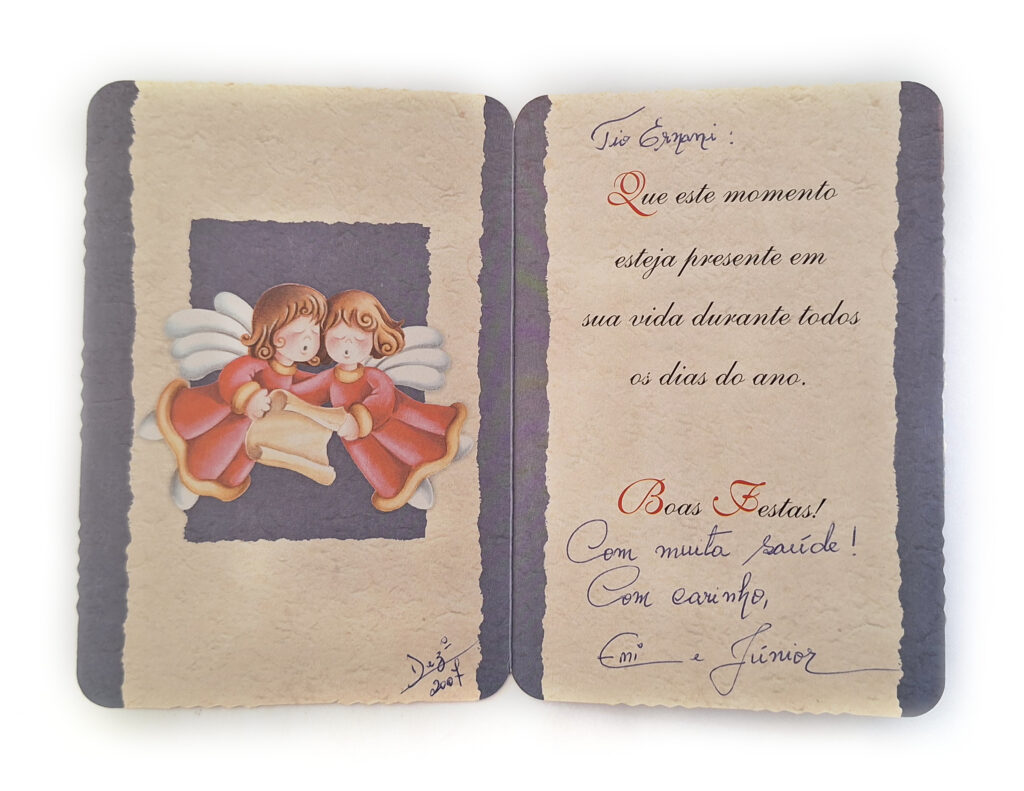 Dezº
2007
Tio Ernani:
Que este momento
esteja presente em
sua vida durante todos
os dias do ano.
Boas Festas!
Com muita saúde!
Com carinho,
Emi e Júnior